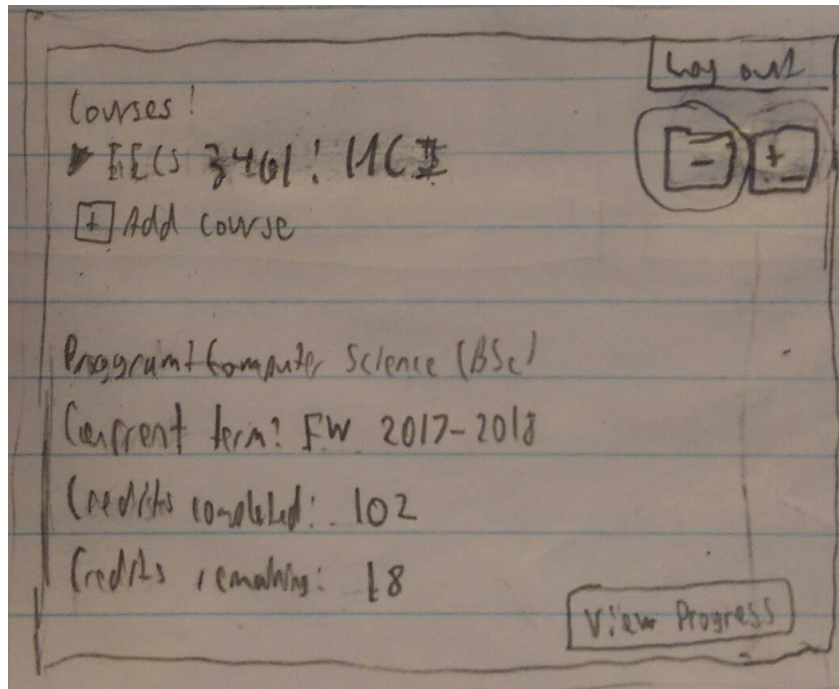 Log out
Courses:
▶ EECS 3461: HCI
- +
+ Add course
Program: Computer Science (BSc)
Current term: FW 2017-2018
Credits completed: 102
Credits remaining: 18
View Progress